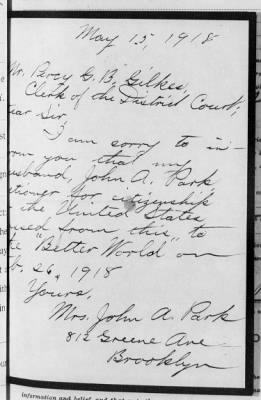 May 15, 1918
Mr. Percy G. B. Gilkes,
Clerk of the District Court;
ear Sir,
I am sorry to in-
orm you that my
usband, John A. Park,
tioner for citizenship
the United States
sed from this, to
te "Better World" on
b. 26, 1918
Yours,
Mrs. John A. Park
812 Greene Ave
Brooklyn
information and belief, and that